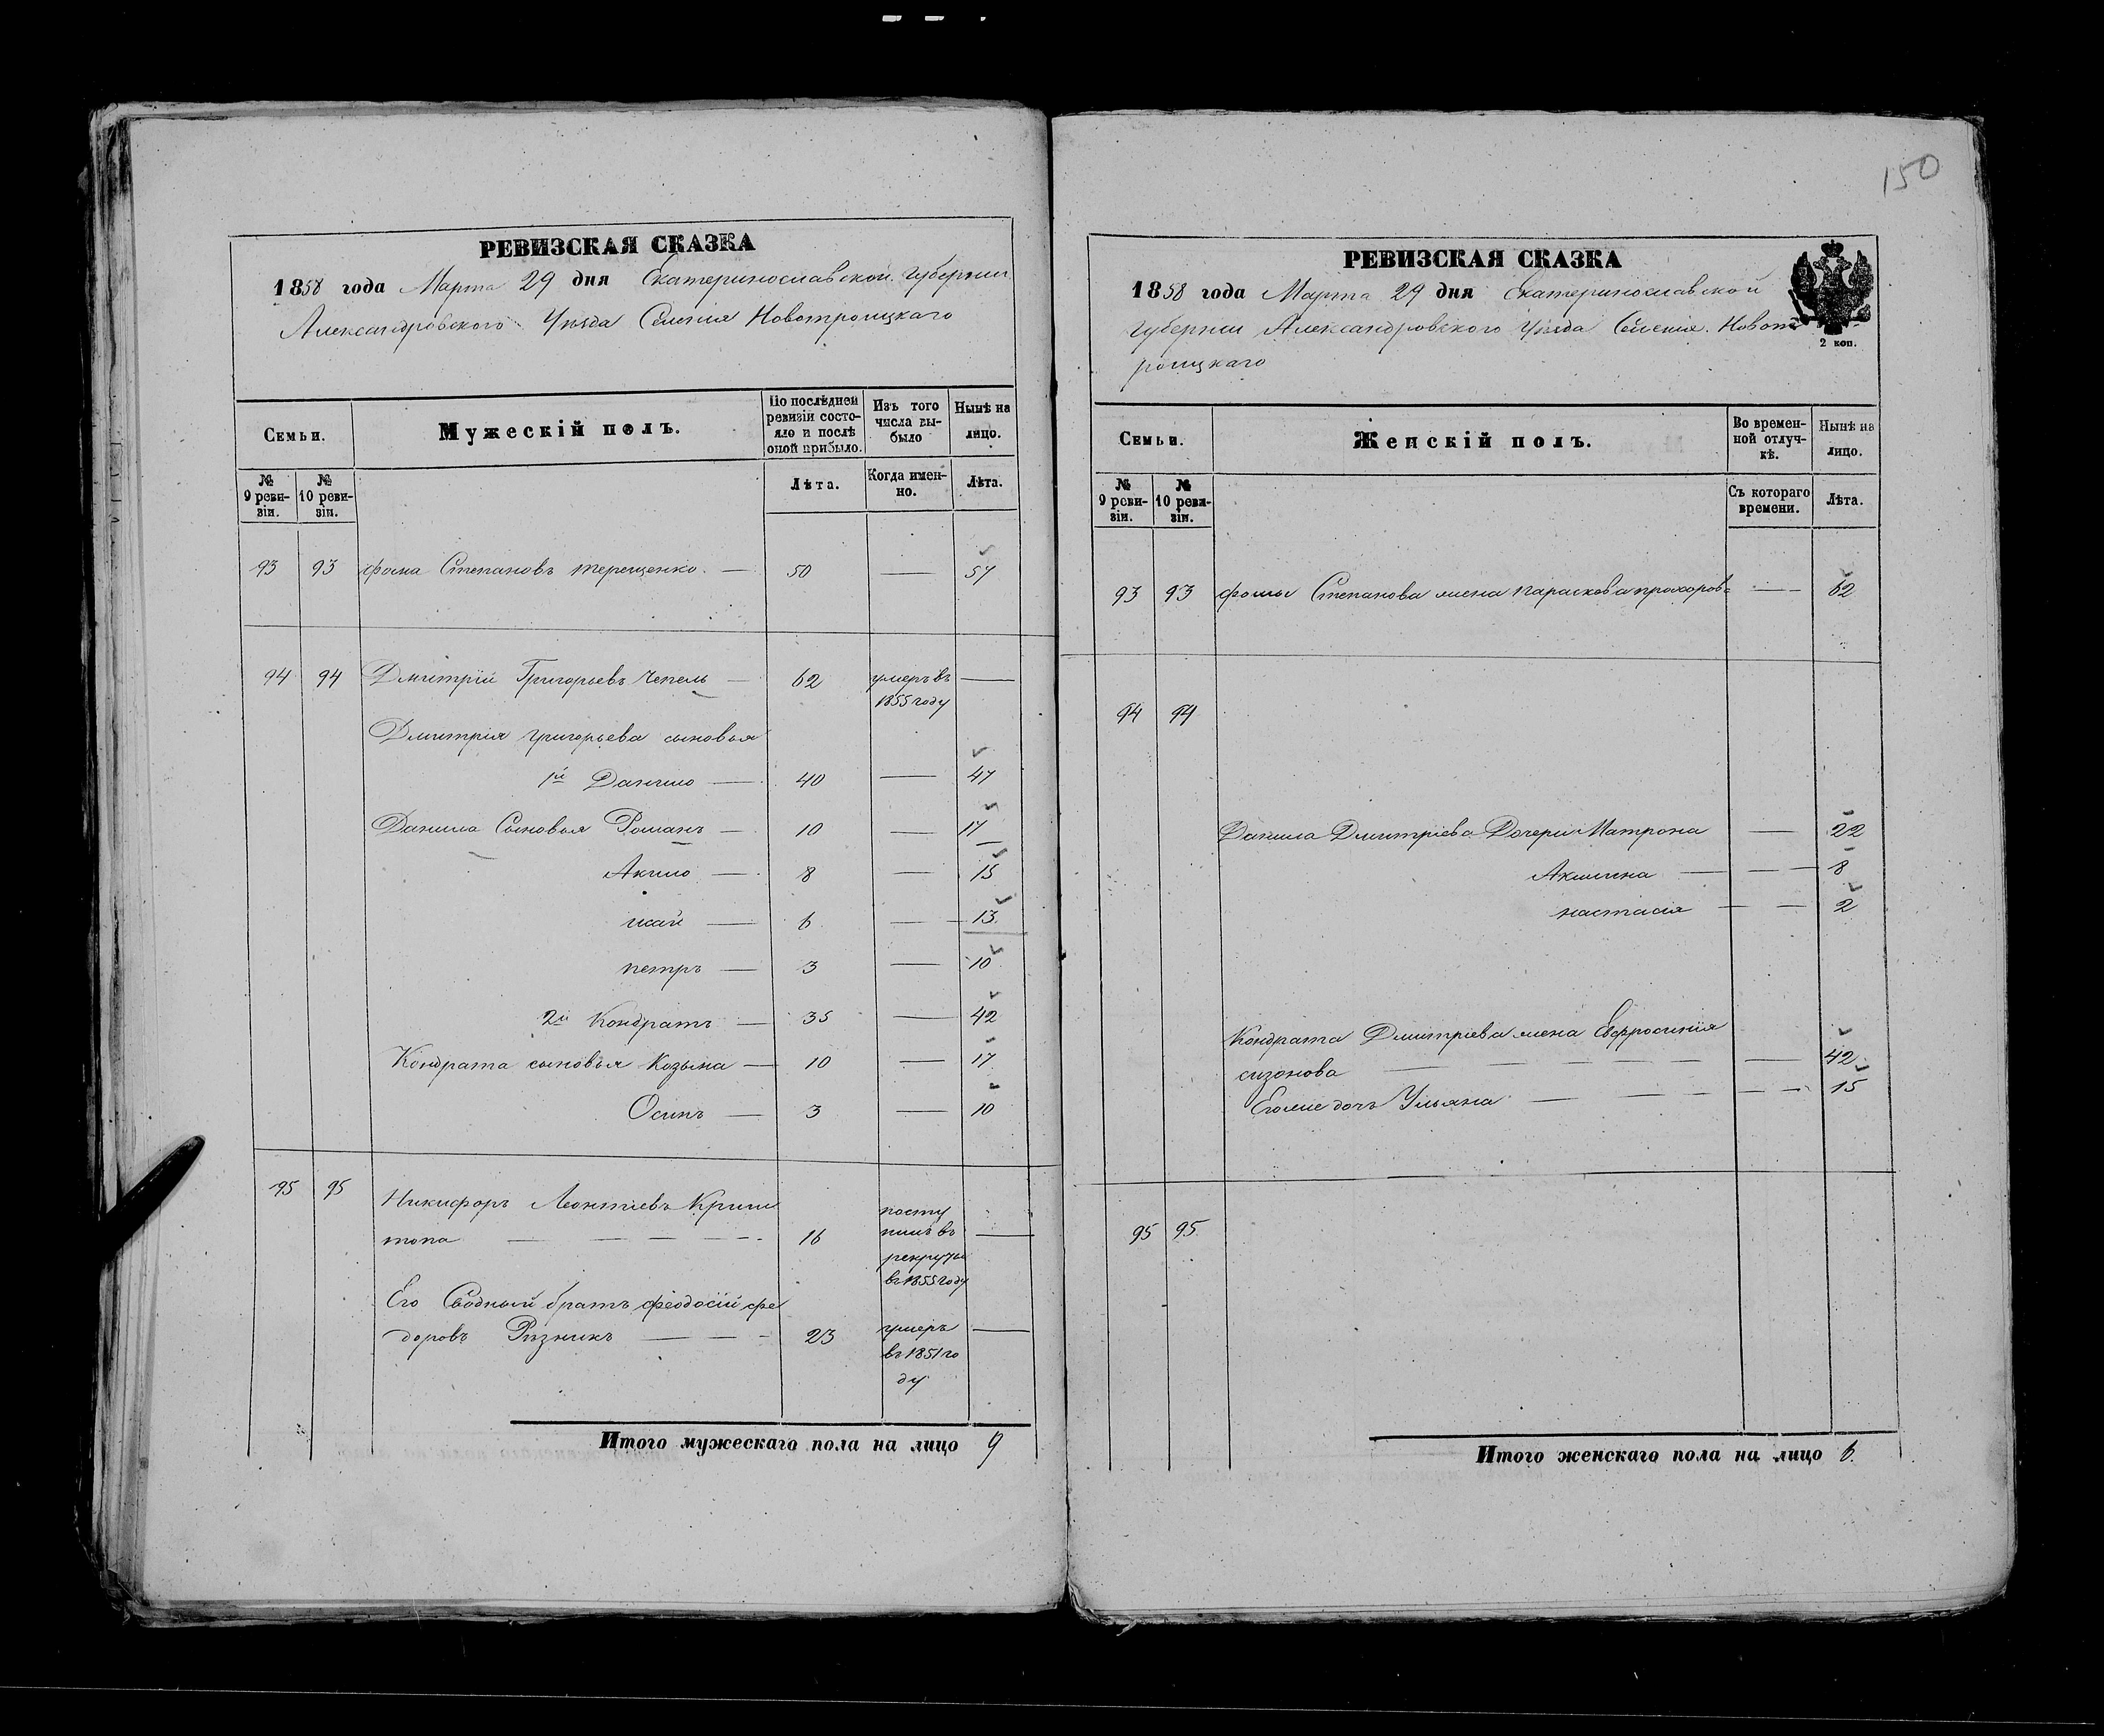 150
РЕВИЗСКАЯ СКАЗКА
1858 года Марта 29 дня Екатеринославской губернии
Александровского Уѣзда Селенія Новотроицкаго
Семьи.
Мужескій полъ.
По послѣдней ревизіи состояло и послѣ оной прибыло.
Изъ того числа выбыло
Нынѣ на лицо.
№ 9 ревизіи.
№ 10 ревизіи.
Лѣта.
Когда именно.
Лѣта.
93 93 Фома Степановъ Терещенко. — 50 — 57
94 94 Дмитрій Григорьевъ Чепель — 62 умеръ въ —
1855 году
Дмитрія Григорьева сыновья
1й Данило — 40 — 47
Данила Сыновья Романъ — 10 — 17
Акимо — 8 — 15
6 — 13
петръ — 3 — 10
2й Кондратъ — 35 — 42
Кондрата сыновья Козьма — 10 — 17
Осипъ — 3 — 10
95 95 Никифоръ Леонтіевъ Криш
топа — — — — 16 посту
пилъ въ —
рекруты
въ 1855 году
Его Сводный братъ Феодосій Фе
доровъ Рѣзникъ — — — 23 умеръ —
въ 1851 го
ду
Итого мужескаго пола на лицо 9
РЕВИЗСКАЯ СКАЗКА
1858 года Марта 29 дня Екатеринославской
губернии Александровского Уѣзда Селенія Новот
роицкаго
2 коп.
Семьи.
Женскій полъ.
Во временной отлучкѣ.
Нынѣ на лицо.
№ 9 ревизіи.
№ 10 ревизіи.
Съ котораго времени.
Лѣта.
93 93 Фомы Степанова жена Параскова Прохорова — 62
94 94
Данила Дмитріева Дочери Матрона — 22
Акилина — — 8
настасія — — 2
Кондрата Дмитріева жена Евфросинія
сизонова — — — — — 42
Егоже дочь Ульяна — — — — 15
95 95
Итого женскаго пола на лицо 6.